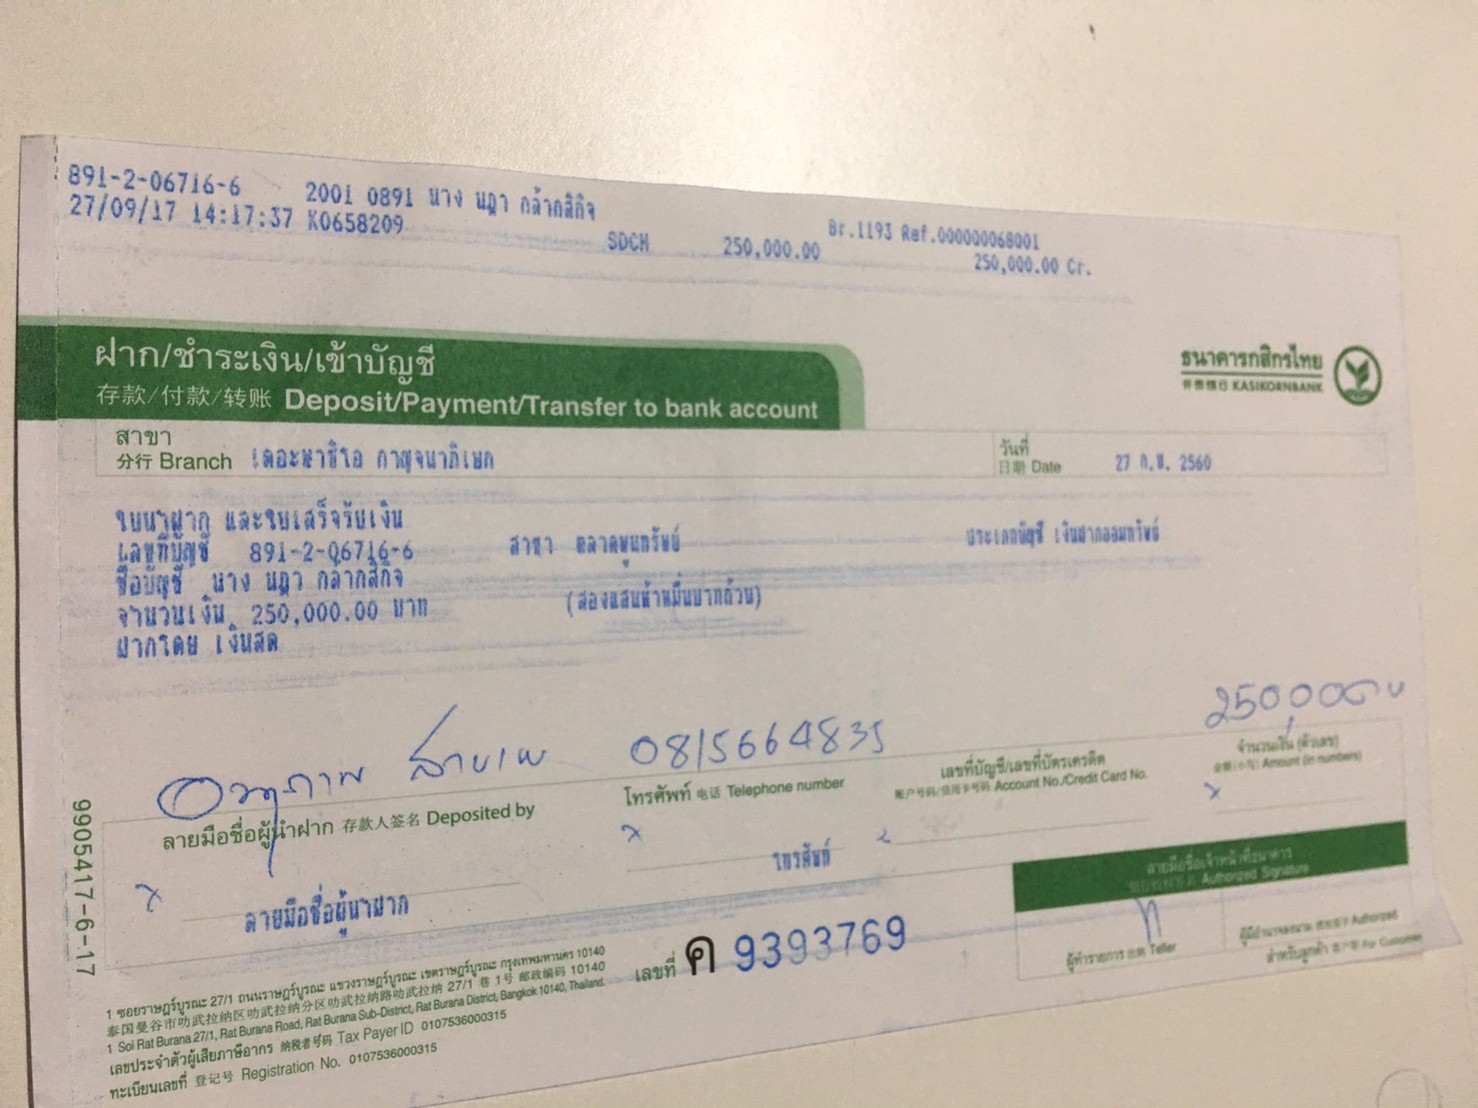 891-2-06716-6 2001 0891 นาง นฎา กล้ากสิกิจ
27/09/17 14:17:37 K0658209 SDCH 250,000.00 Br.1193 Ref.000000068001
250,000.00 Cr.
ฝาก/ชำระเงิน/เข้าบัญชี
存款/付款/转账 Deposit/Payment/Transfer to bank account
ธนาคารกสิกรไทย
开泰银行 KASIKORNBANK
สาขา
分行 Branch เดอะพาซิโอ กาญจนาภิเษก
วันที่
日期 Date 27 ก.ย. 2560
ใบนำฝาก และใบเสร็จรับเงิน
เลขที่บัญชี 891-2-06716-6 สาขา ตลาดพูนทรัพย์ ประเภทบัญชี เงินฝากออมทรัพย์
ชื่อบัญชี นาง นฎา กล้ากสิกิจ
จำนวนเงิน 250,000.00 บาท (สองแสนห้าหมื่นบาทถ้วน)
ฝากโดย เงินสด
0815664835
250,000
ลายมือชื่อผู้นำฝาก 存款人签名 Deposited by
โทรศัพท์ 电话 Telephone number
เลขที่บัญชี/เลขที่บัตรเครดิต
账户号码/信用卡号码 Account No./Credit Card No.
จำนวนเงิน (ตัวเลข)
金额(小写) Amount (in numbers)
x x x
ลายมือชื่อผู้นำฝาก
โทรศัพท์
ลายมือชื่อเจ้าหน้าที่ธนาคาร
Authorized Signature
ผู้ทำรายการ 出纳 Teller
ผู้มีอำนาจลงนาม Authorized
สำหรับลูกค้า 客户联 For Customer
เลขที่ ค 9393769
9905417-6-17
1 ซอยราษฎร์บูรณะ 27/1 ถนนราษฎร์บูรณะ แขวงราษฎร์บูรณะ เขตราษฎร์บูรณะ กรุงเทพมหานคร 10140
泰国曼谷市叻武拉纳区叻武拉纳分区叻武拉纳路叻武拉纳 27/1 巷 1号 邮政编码 10140
1 Soi Rat Burana 27/1, Rat Burana Road, Rat Burana Sub-District, Rat Burana District, Bangkok 10140, Thailand.
เลขประจำตัวผู้เสียภาษีอากร 纳税者号码 Tax Payer ID 0107536000315
ทะเบียนเลขที่ 登记号 Registration No. 0107536000315